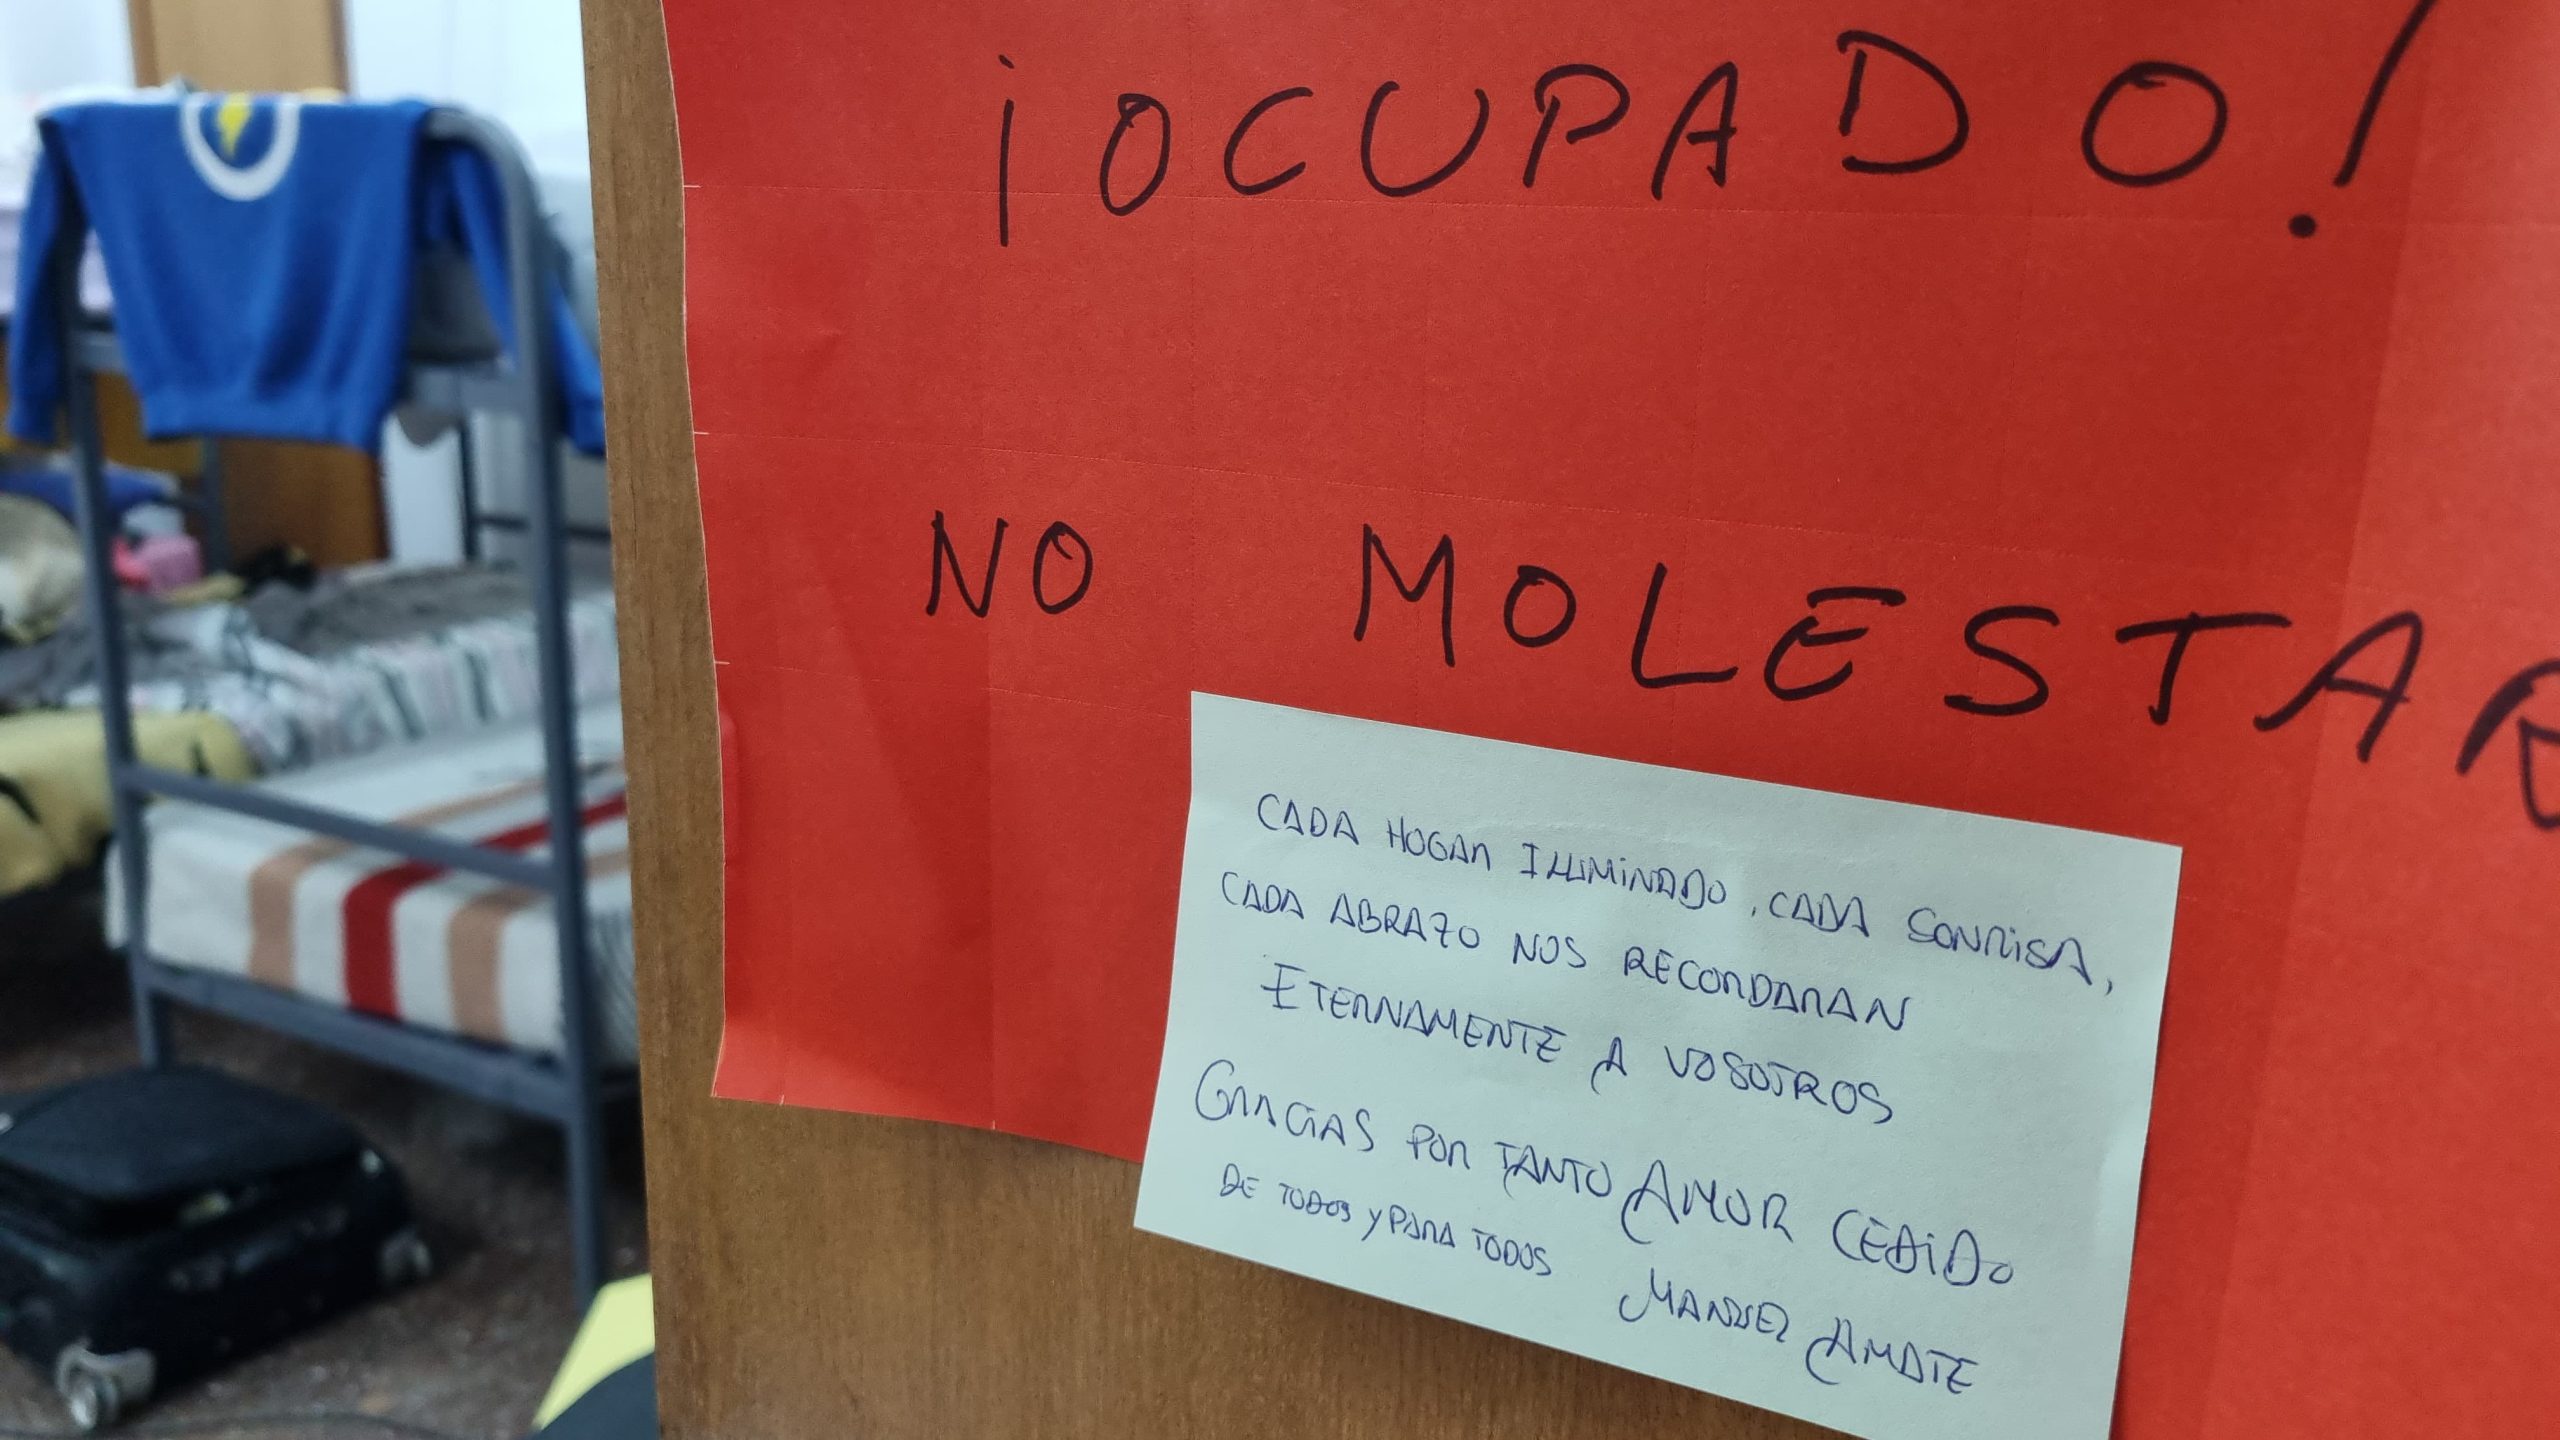 ¡OCUPADO!
NO MOLESTAR
CADA HOGAR ILUMINADO, CADA SONRISA,
CADA ABRAZO NOS RECORDARAN
ETERNAMENTE A VOSOTROS
GRACIAS POR TANTO AMOR CEDIDO
DE TODOS Y PARA TODOS
MANUEL AMATE